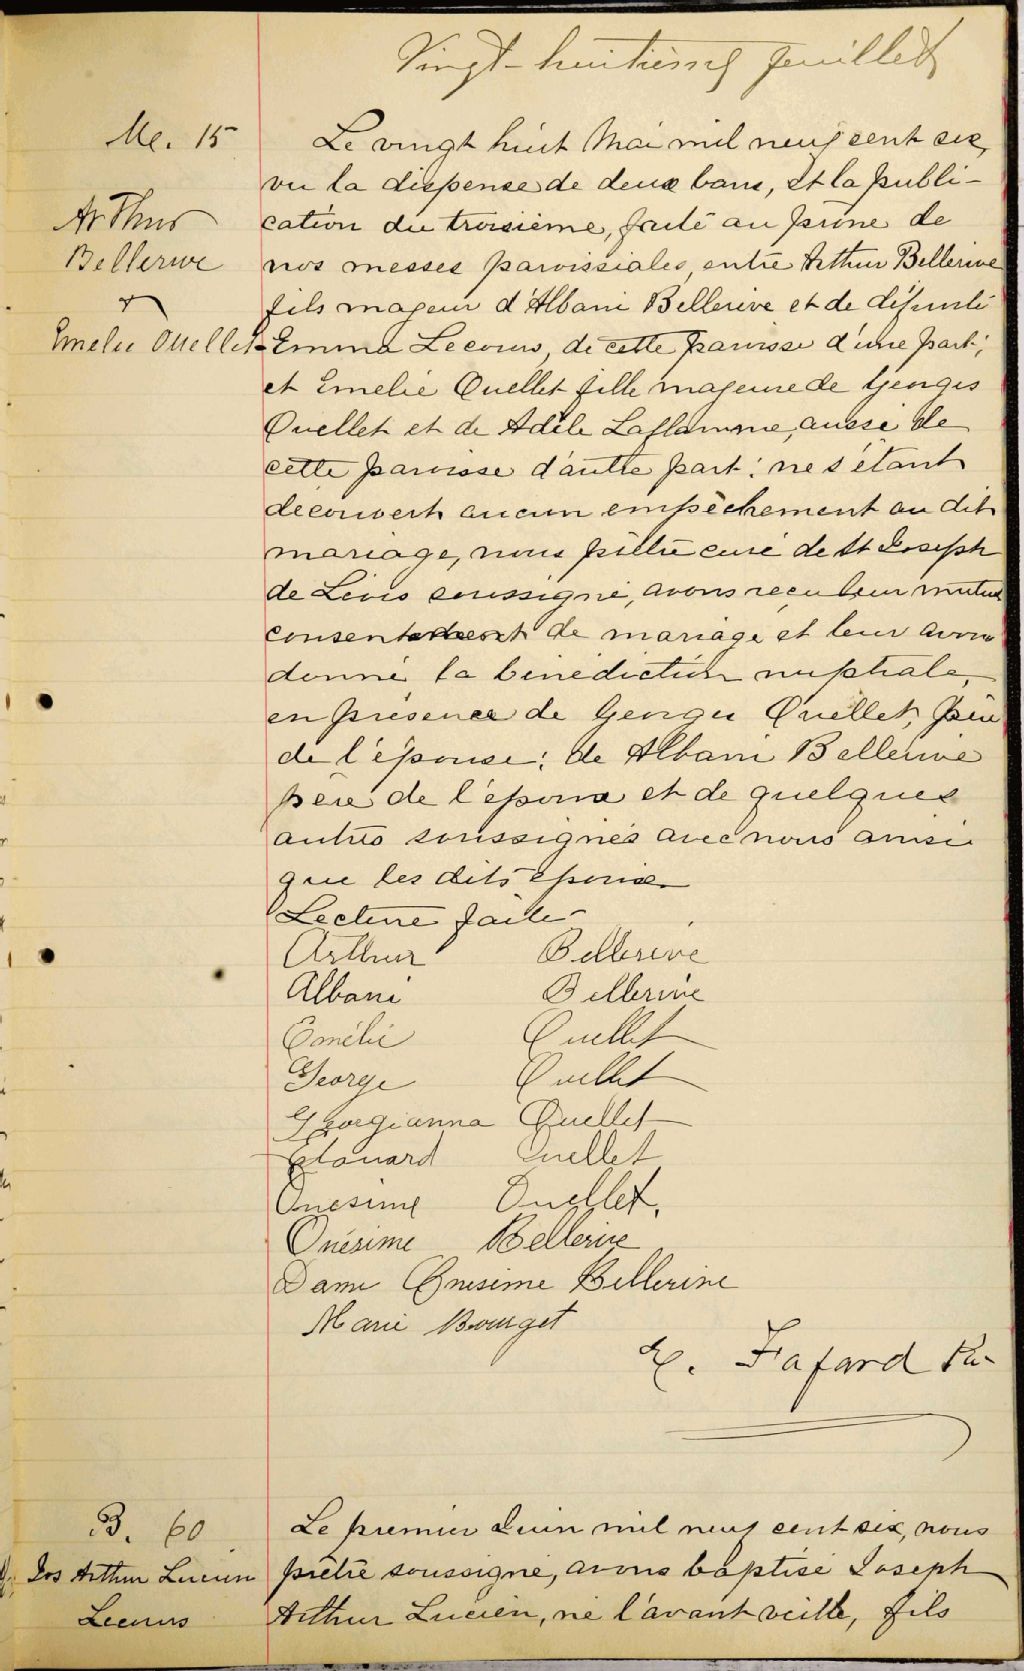 Vingt-huitième feuillet
Me. 15
Arthur
Bellerive
&
Emelie Ouellet
Le vingt huit Mai mil neuf cent six,
vu la dispense de deux bans, et la publi-
cation du troisième, faite au prône de
nos messes paroissiales, entre Arthur Bellerive
fils majeur d'Albani Bellerive et de défunte
Emma Lecours, de cette paroisse d'une part;
et Emelie Ouellet fille majeure de Georges
Ouellet et de Adèle Laflamme, aussi de
cette paroisse d'autre part; ne s'étant
découvert aucun empêchement au dit
mariage, nous prêtre curé de St Joseph
de Lévis soussigné, avons reçu leur mutuel
consentement de mariage et leur avons
donné la bénédiction nuptiale,
en présence de Georges Ouellet, père
de l'épouse; de Albani Bellerive
père de l'époux et de quelques
autres soussignés avec nous ainsi
que les dits époux
Lecture faite
Arthur Bellerive
Albani Bellerive
Emélie Ouellet
George Ouellet
Georgianna Ouellet
Edouard Ouellet
Onesime Ouellet.
Onésime Bellerive
Dame Onesime Bellerive
Marie Bourget
E. Fafard Ptr
B. 60
Jos Arthur Lucien
Lecours
Le premier Juin mil neuf cent six, nous
prêtre soussigné, avons baptisé Joseph
Arthur Lucien, né l'avant veille, fils